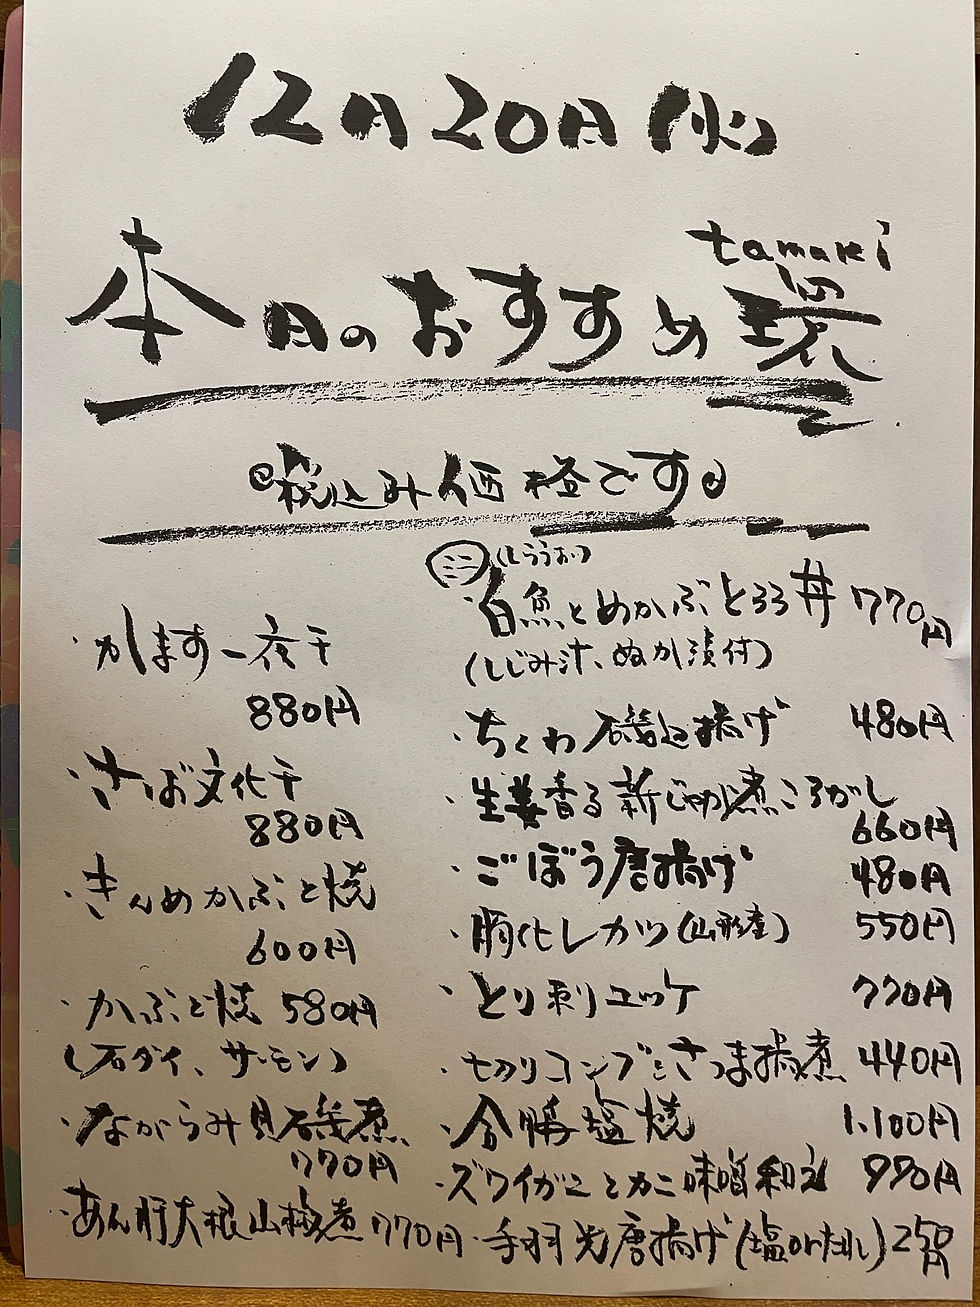 12月20日(火)
tamaki
本日のおすすめ 環
税込み価格です
・かます一夜干
880円
・さば文化干
880円
・きんめかぶと焼
600円
・かぶと焼 580円
(石ダイ、サーモン)
・ながらみ貝磯煮
770円
・あん肝大根山椒煮 770円
ミニ (しらうお)
・白魚とめかぶとろろ丼 770円
(しじみ汁、ぬか漬付)
・ちくわ磯辺揚げ 480円
・生姜香る新じゃが煮ころがし
660円
・ごぼう唐揚げ 480円
・豚ヒレカツ(山形産) 550円
・とり刺ユッケ 770円
・切りコンブとさつま揚煮 440円
・合鴨塩焼 1,100円
・ズワイガニとカニ味噌和え 990円
・手羽先唐揚げ(塩orたれ) 250円